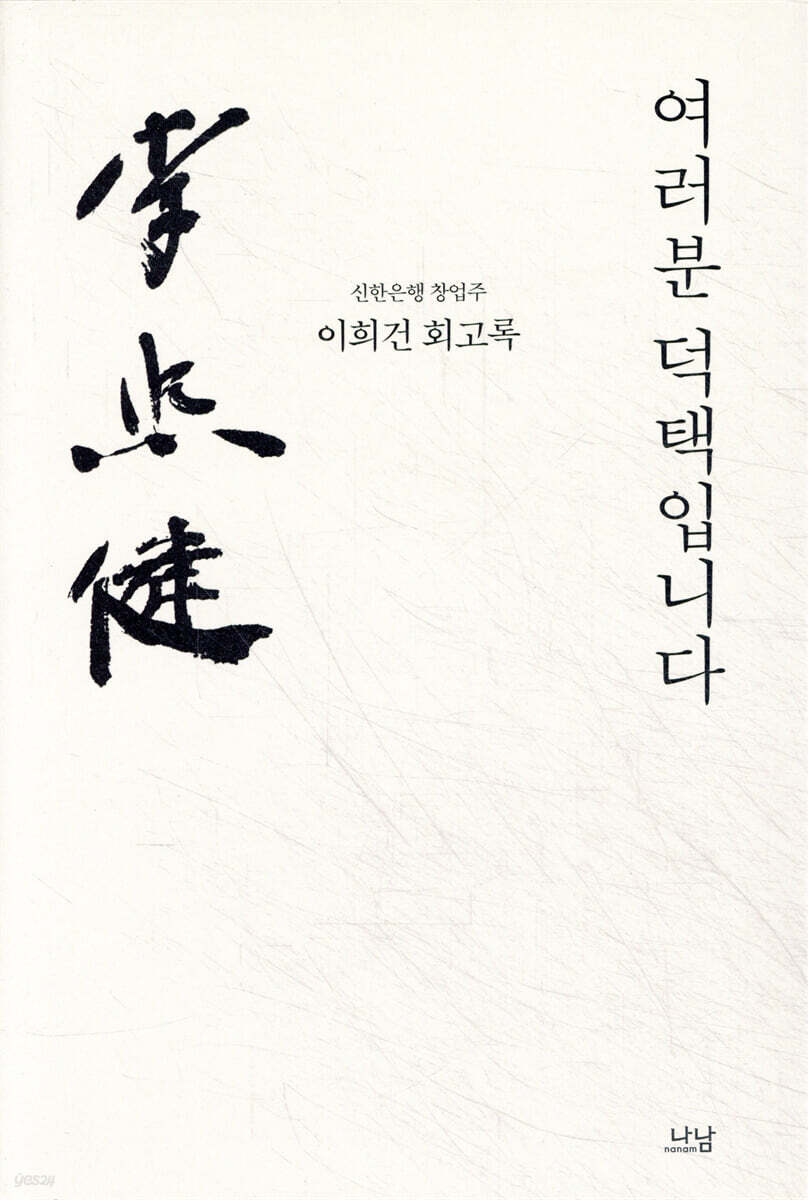 여러분 덕택입니다
신한은행 창업주
이희건 회고록
李熙健
나남
nanam
yes24